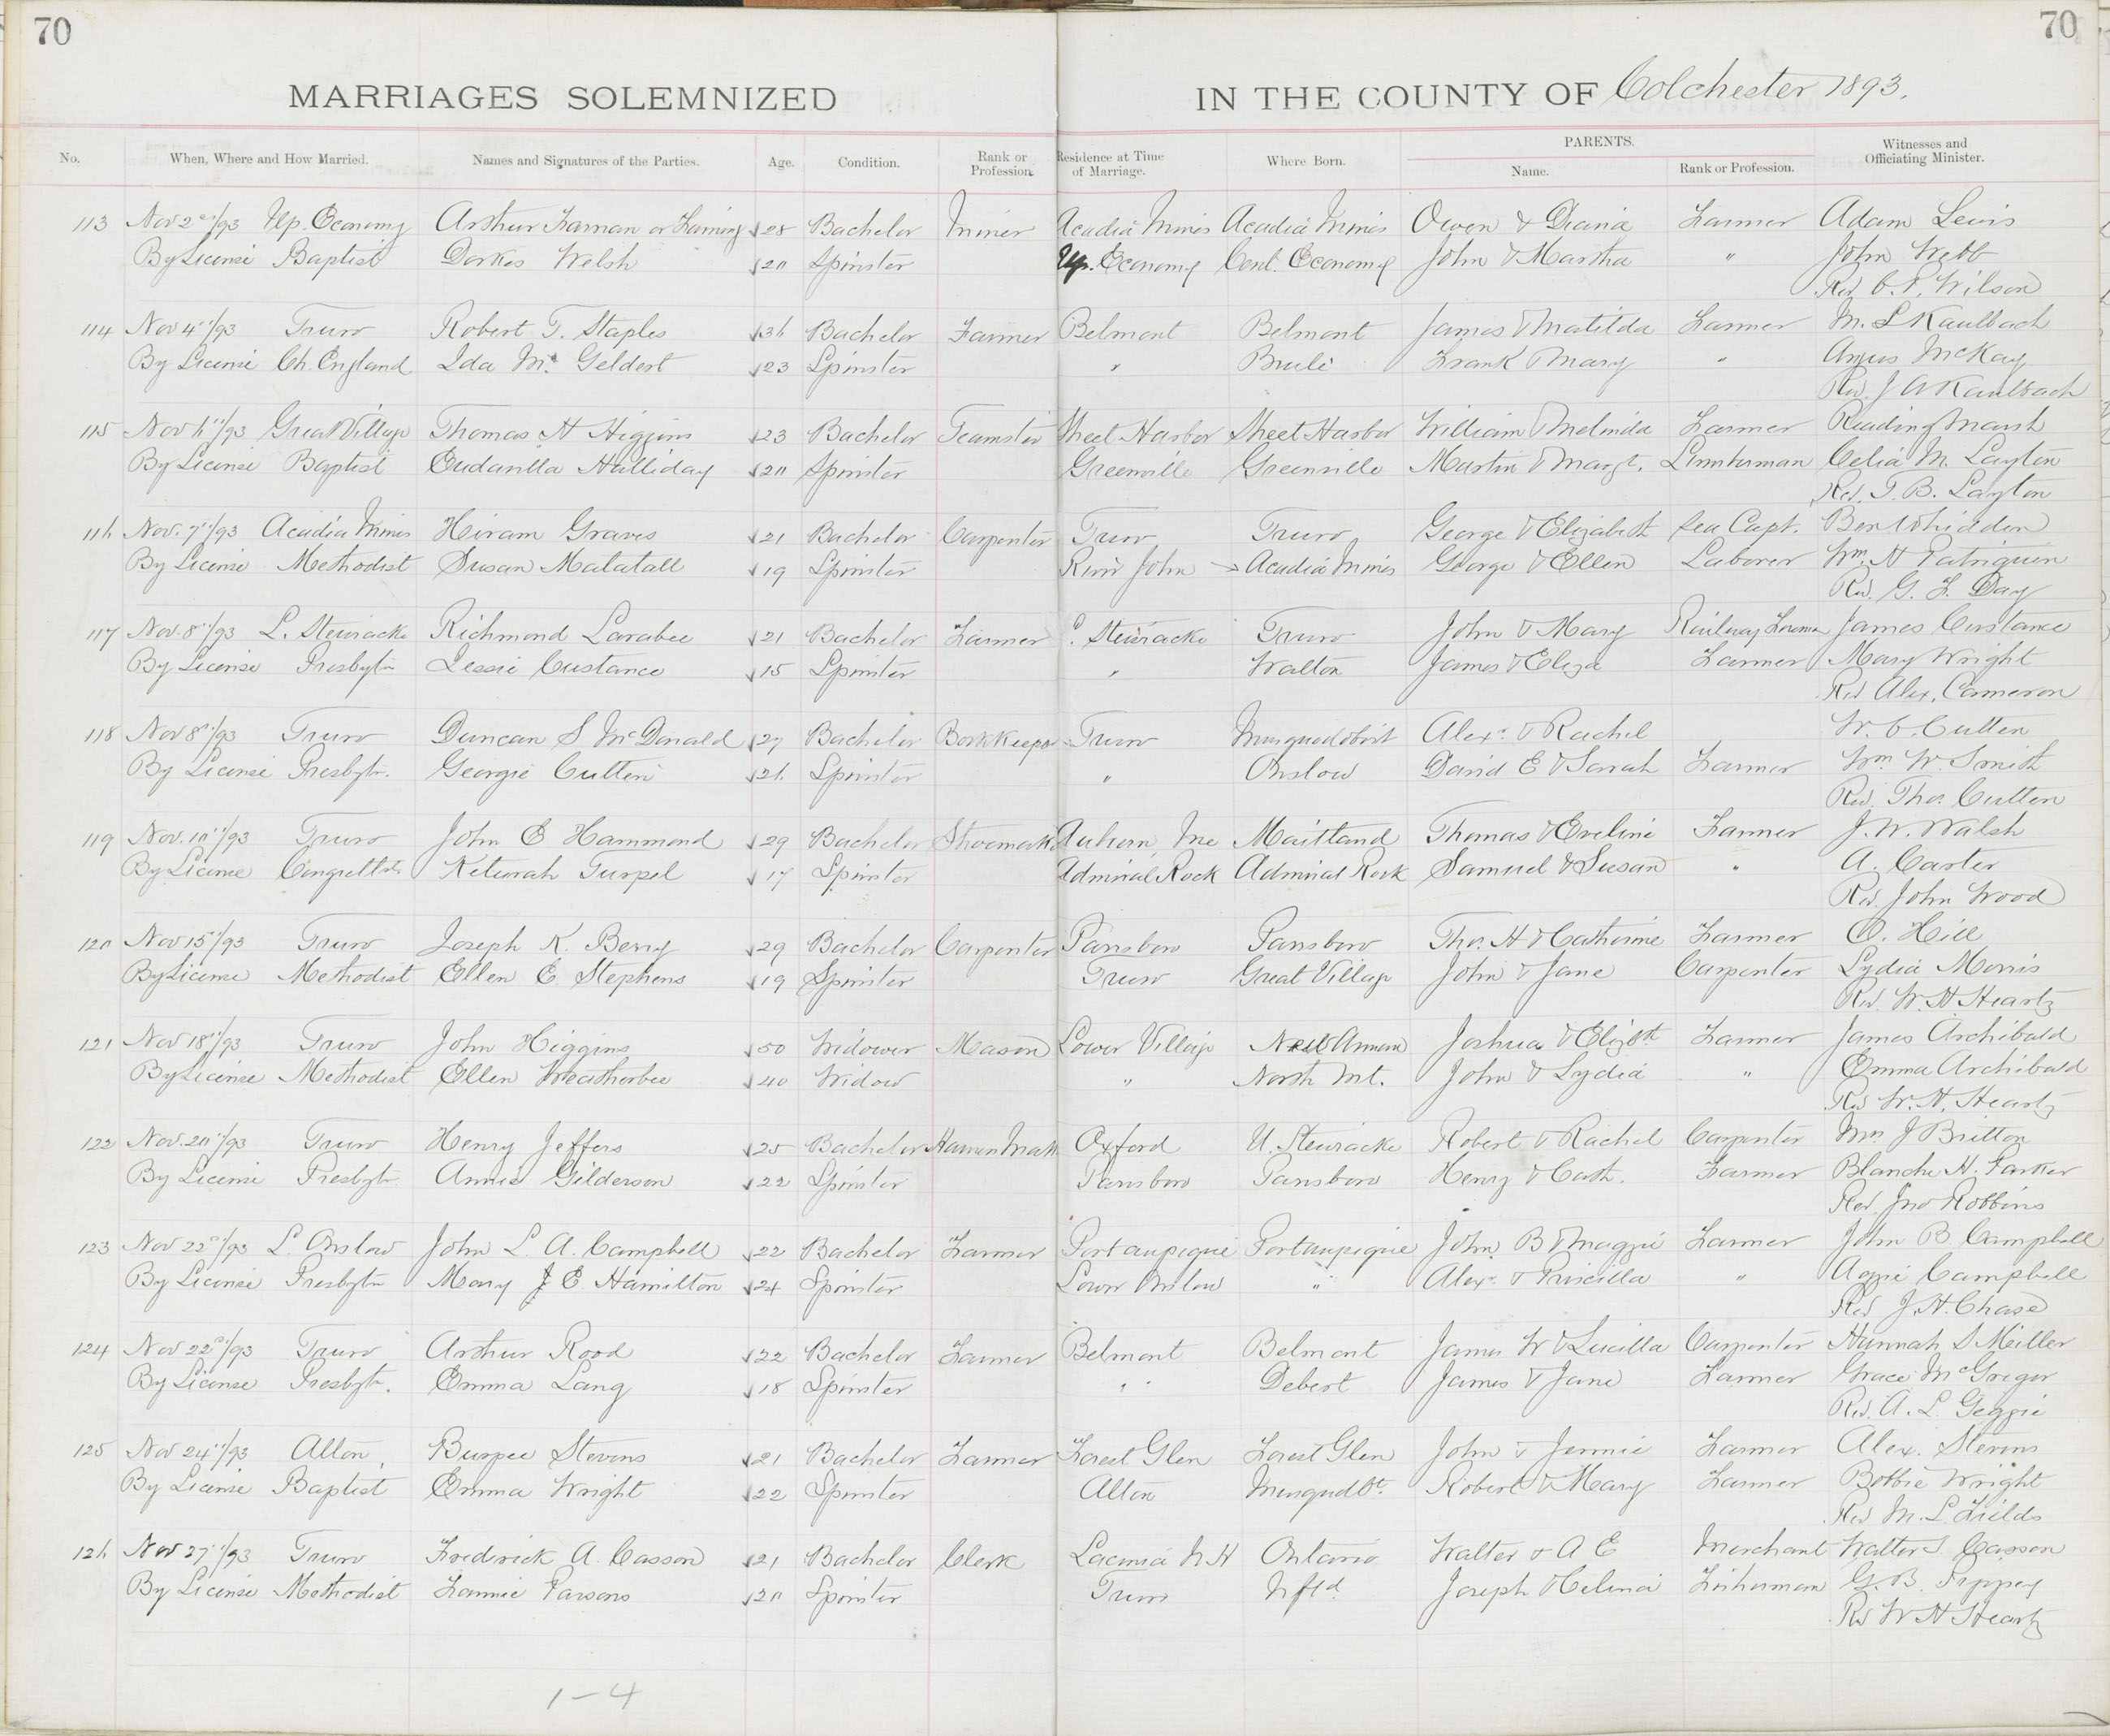 70
70
MARRIAGES SOLEMNIZED IN THE COUNTY OF Colchester 1893.
No. When, Where and How Married. Names and Signatures of the Parties. Age. Condition. Rank or Profession. Residence at Time of Marriage. Where Born. PARENTS. Name. Rank or Profession. Witnesses and Officiating Minister.
113 Nov 2nd/93 Up. Economy Arthur Faman or Laming 28 Bachelor Miner Acadia Mines Acadia Mines Owen & Diana Farmer Adam Lewis
By License Baptist Dorkes Welsh 20 Spinster Up. Economy Cent. Economy John & Martha " John Webb
Rev. C. P. Wilson
114 Nov 4"/93 Truro Robert T. Staples 36 Bachelor Farmer Belmont Belmont James & Matilda Farmer M. L Kaulbach
By License Ch. England Ida Mt Geldert 23 Spinster " Brule Frank & Mary " Angus McKay
Rev. J A Kaulbach
115 Nov 6"/93 Great Village Thomas H Higgins 23 Bachelor Teamster Sheet Harbor Sheet Harbor William & Melinda Farmer Reading Marsh
By License Baptist Eudavilla Halliday 20 Spinster Greenville Greenville Martin & Margt. Lumberman Celia M. Layton
Rev. T. B. Layton
116 Nov. 7"/93 Acadia Mines Hiram Graves 21 Bachelor Carpenter Truro Truro George & Elizabeth Sea Capt. Ben Whidden
By License Methodist Susan Malatall 19 Spinster River John Acadia Mines George & Ellen Laborer Wm. H Patriquin
Rev. G. F. Day
117 Nov. 8"/93 L. Stewiacke Richmond Larabee 21 Bachelor Farmer L. Stewiacke Truro John & Mary Railway Foreman James Custance
By License Presbytn Lessie Custance 15 Spinster " Walton James & Eliza Farmer Mary Wright
Rev Alex. Cameron
118 Nov 8"/93 Truro Duncan S McDonald 27 Bachelor BookKeeper Truro Musquodoboit Alexr. & Rachel W. C. Cutten
By License Presbytn. Georgie Cutten 26 Spinster " Onslow David E & Sarah Farmer Wm. W. Smith
Rev. Thos. Cutten
119 Nov. 10"/93 Truro John E Hammond 29 Bachelor Shoemaker Auburn, Me Maitland Thomas & Eveline Farmer J. W. Walsh
By License Congretlst. Keturah Turpel 17 Spinster Admiral Rock Admiral Rock Samuel & Susan " A. Carter
Rev. John Wood
120 Nov 15"/93 Truro Joseph K. Berry 29 Bachelor Carpenter Parrsboro Parrsboro Thos. H & Catherine Farmer O. Hill
By License Methodist Ellen E. Stephens 19 Spinster Truro Great Village John & Jane Carpenter Lydia Morris
Rev. W. H Heartz
121 Nov 18"/93 Truro John Higgins 50 Widower Mason Lower Village New Annan Joshua & Elizbth Farmer James Archibald
By License Methodist Ellen Weatherbee 40 Widow " North Mt. John & Lydia " Emma Archibald
Rev W. H. Heartz
122 Nov. 20"/93 Truro Henry Jeffers 25 Bachelor Harness Mak Oxford U. Stewiacke Robert & Rachel Carpenter Mrs J Britton
By License Presbytn Annie Gilderson 22 Spinster Parrsboro Parrsboro Henry & Cath. Farmer Blanche H. Parker
Rev. Jno Robbins
123 Nov 22"/93 L. Onslow John L. A. Campbell 22 Bachelor Farmer Portaupique Portaupique John B & Maggie Farmer John B Campbell
By License Presbytn Mary J E. Hamilton 24 Spinster Lower Onslow " Alexr. & Priscilla " Aggie Campbell
Rev J. H. Chase
124 Nov 22"/93 Truro Arthur Rood 22 Bachelor Farmer Belmont Belmont James W & Lucilla Carpenter Hannah S Miller
By License Presbytn. Emma Lang 18 Spinster " Debert James & Jane Farmer Grace McGregor
Rev. A. L. Geggie
125 Nov 24"/93 Alton, Burpee Stevens 21 Bachelor Farmer Forest Glen Forest Glen John & Jennie Farmer Alex. Stevens
By License Baptist Emma Wright 22 Spinster Alton Musqudbt. Robert & Mary Farmer Bobbie Wright
Rev M. L. Fields
126 Nov 27"/93 Truro Fredrick A. Casson 21 Bachelor Clerk Laconia N H Ontario Walter & A E Merchant Walter S. Casson
By License Methodist Fannie Parsons 20 Spinster Truro Nfld. Joseph & Celina Fisherman G. B. Sippey
Rev W H Heartz
1-4